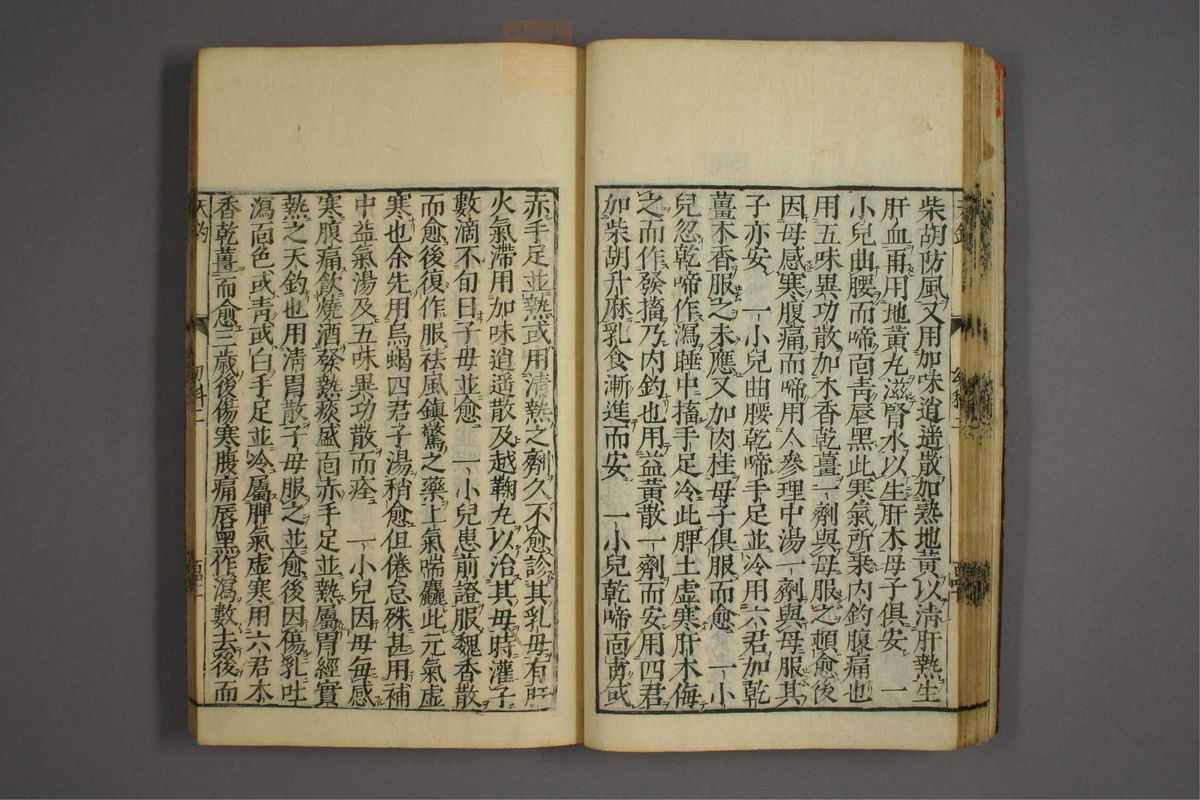 柴胡防風又用加味逍遥散加熟地黃以清肝熱生
肝血再用地黃丸滋腎水以生肝木母子俱安 一
小兒曲腰而啼面青唇黑此寒氣所乗内釣腹痛也
用五味異功散加木香乾薑一劑與母服之頓愈後
因母感寒腹痛而啼用人參理中湯一劑與母服其
子亦安 一小兒曲腰乾啼手足並冷用六君加乾
薑木香服之未應又加肉桂母子俱服而愈 一小
兒忽乾啼作瀉睡中搐手足冷此脾土虚寒肝木侮
之而作發搐乃内釣也用益黃散一劑而安用四君
加柴胡升麻乳食漸進而安 一小兒乾啼面青或
赤手足並熱或用清熱之劑久不愈診其乳母有肝
火氣滯用加味逍遥散及越鞠丸以治其母時灌子
數滴不旬日子母並愈 一小兒患前證服魏香散
而愈後復作服祛風鎮驚之藥上氣喘麤此元氣虚
寒也余先用烏蝎四君子湯稍愈但倦怠殊甚用補
中益氣湯及五味異功散而痊 一小兒因母每感
寒腹痛飲燒酒發熱痰盛面赤手足並熱屬胃經實
熱之天釣也用清胃散子母服之並愈後因傷乳吐
瀉面色或青或白手足並冷屬脾氣虚寒用六君木
香乾薑而愈三歲後傷寒腹痛唇黑作瀉數去後而
天釣 幼科二